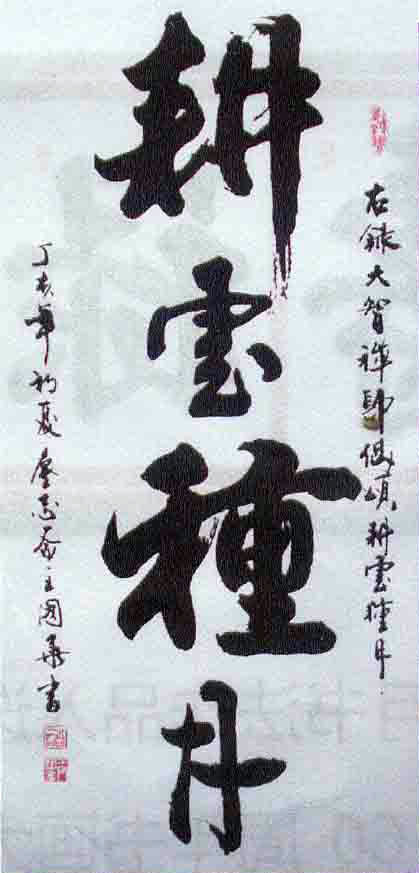 右錄大智禪師偈頌耕雲種月
耕雲種月
丁亥年初夏國華書